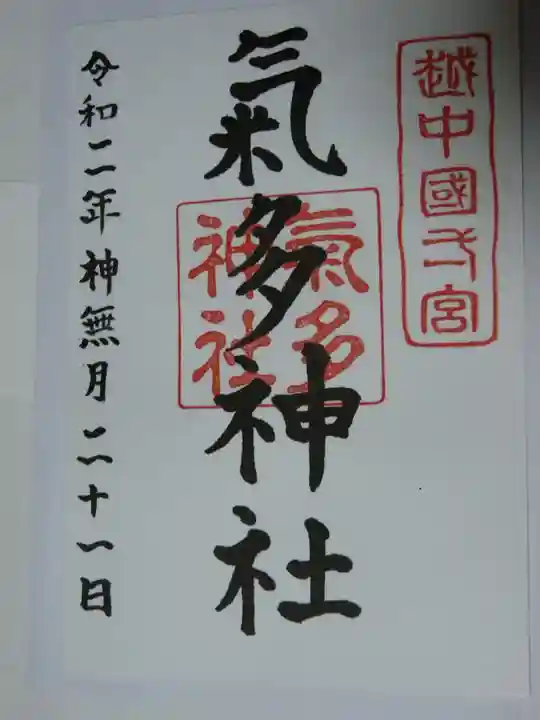 越中國一宮
氣多神社
氣多
神社
令和二年神無月二十一日